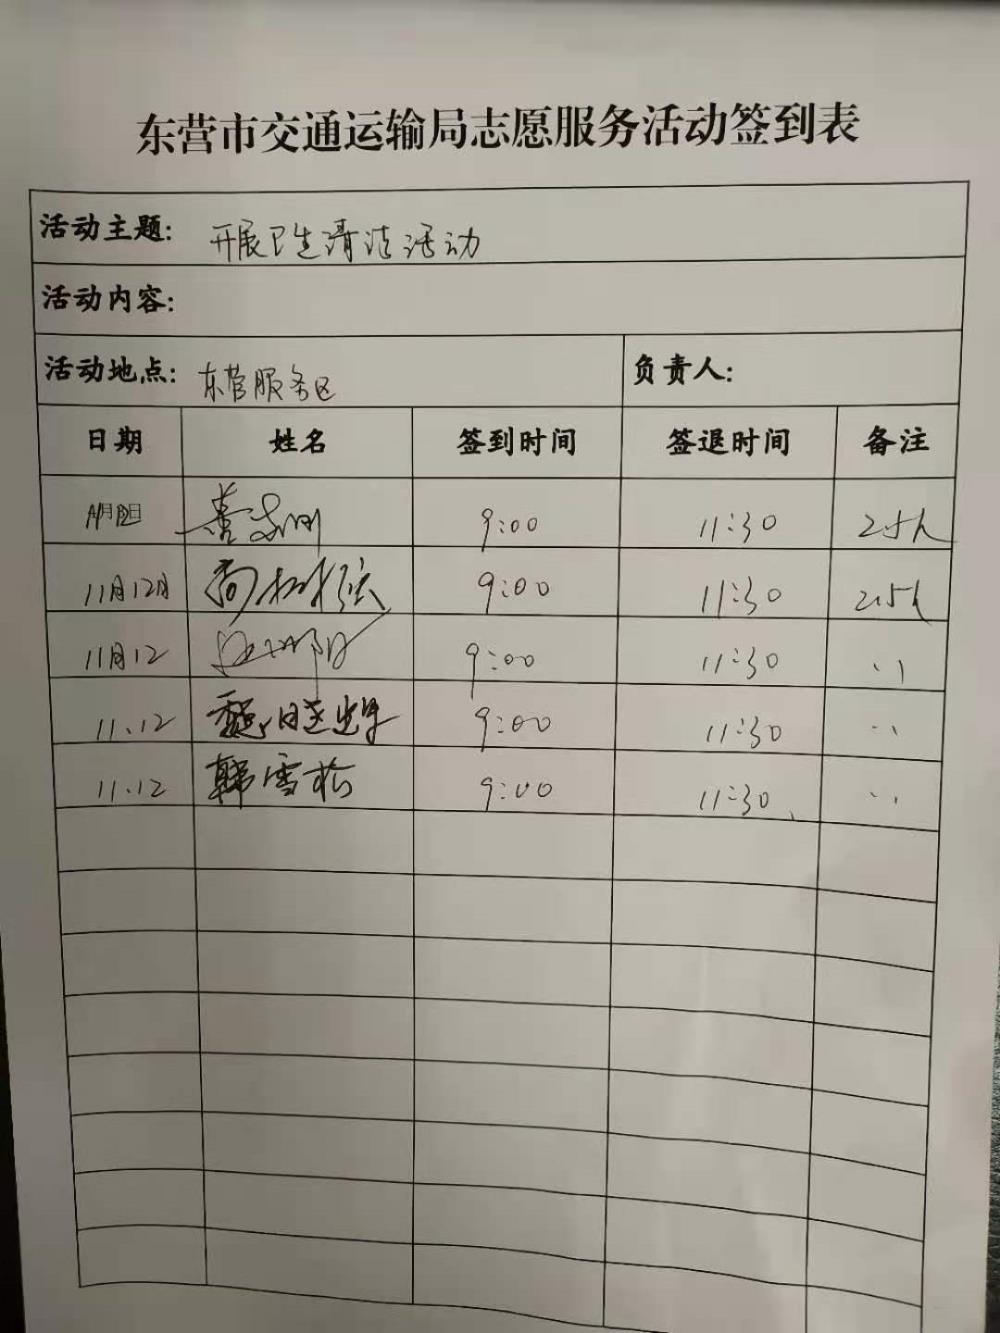 东营市交通运输局志愿服务活动签到表
活动主题: 开展卫生清洁活动
活动内容:
活动地点: 东营服务区 负责人:
日期 姓名 签到时间 签退时间 备注
11月12日 9:00 11:30 2.5h
11月12日 9:00 11:30 2.5h
11月12 9:00 11:30 ..
11.12 魏晓辉 9:00 11:30 ..
11.12 韩雪松 9:00 11:30 ..